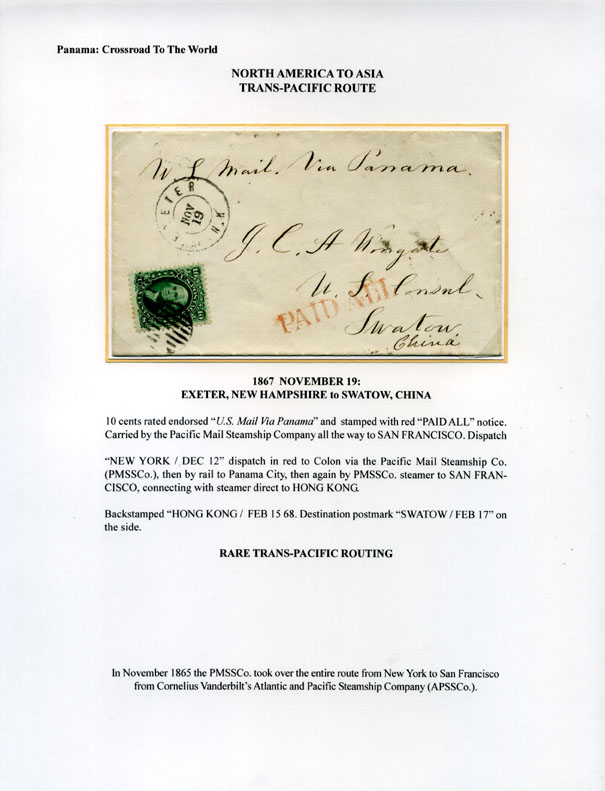 Panama: Crossroad To The World
NORTH AMERICA TO ASIA
TRANS-PACIFIC ROUTE
U S Mail. Via Panama.
EXETER
N.H
NOV
19
J. C. A Wingate
U. S. Consul
PAID ALL
Swatow.
China
10 10
1867 NOVEMBER 19:
EXETER, NEW HAMPSHIRE to SWATOW, CHINA
10 cents rated endorsed “U.S. Mail Via Panama” and stamped with red “PAID ALL” notice.
Carried by the Pacific Mail Steamship Company all the way to SAN FRANCISCO. Dispatch
“NEW YORK / DEC 12” dispatch in red to Colon via the Pacific Mail Steamship Co.
(PMSSCo.), then by rail to Panama City, then again by PMSSCo. steamer to SAN FRAN-
CISCO, connecting with steamer direct to HONG KONG.
Backstamped “HONG KONG / FEB 15 68. Destination postmark “SWATOW / FEB 17” on
the side.
RARE TRANS-PACIFIC ROUTING
In November 1865 the PMSSCo. took over the entire route from New York to San Francisco
from Cornelius Vanderbilt’s Atlantic and Pacific Steamship Company (APSSCo.).